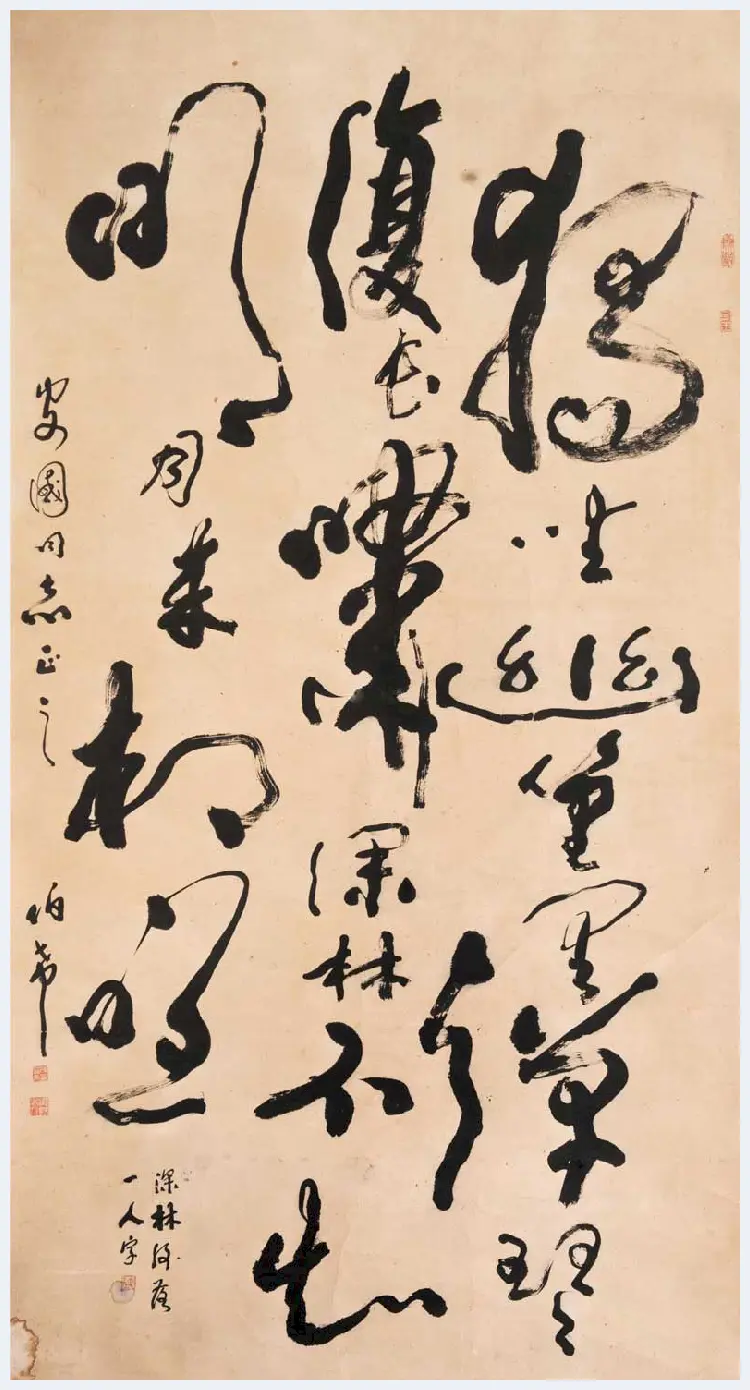 獨坐幽篁里彈琴
復長嘯深林不知
明月来相照
深林後落
一人字
安國同志正之
伯希